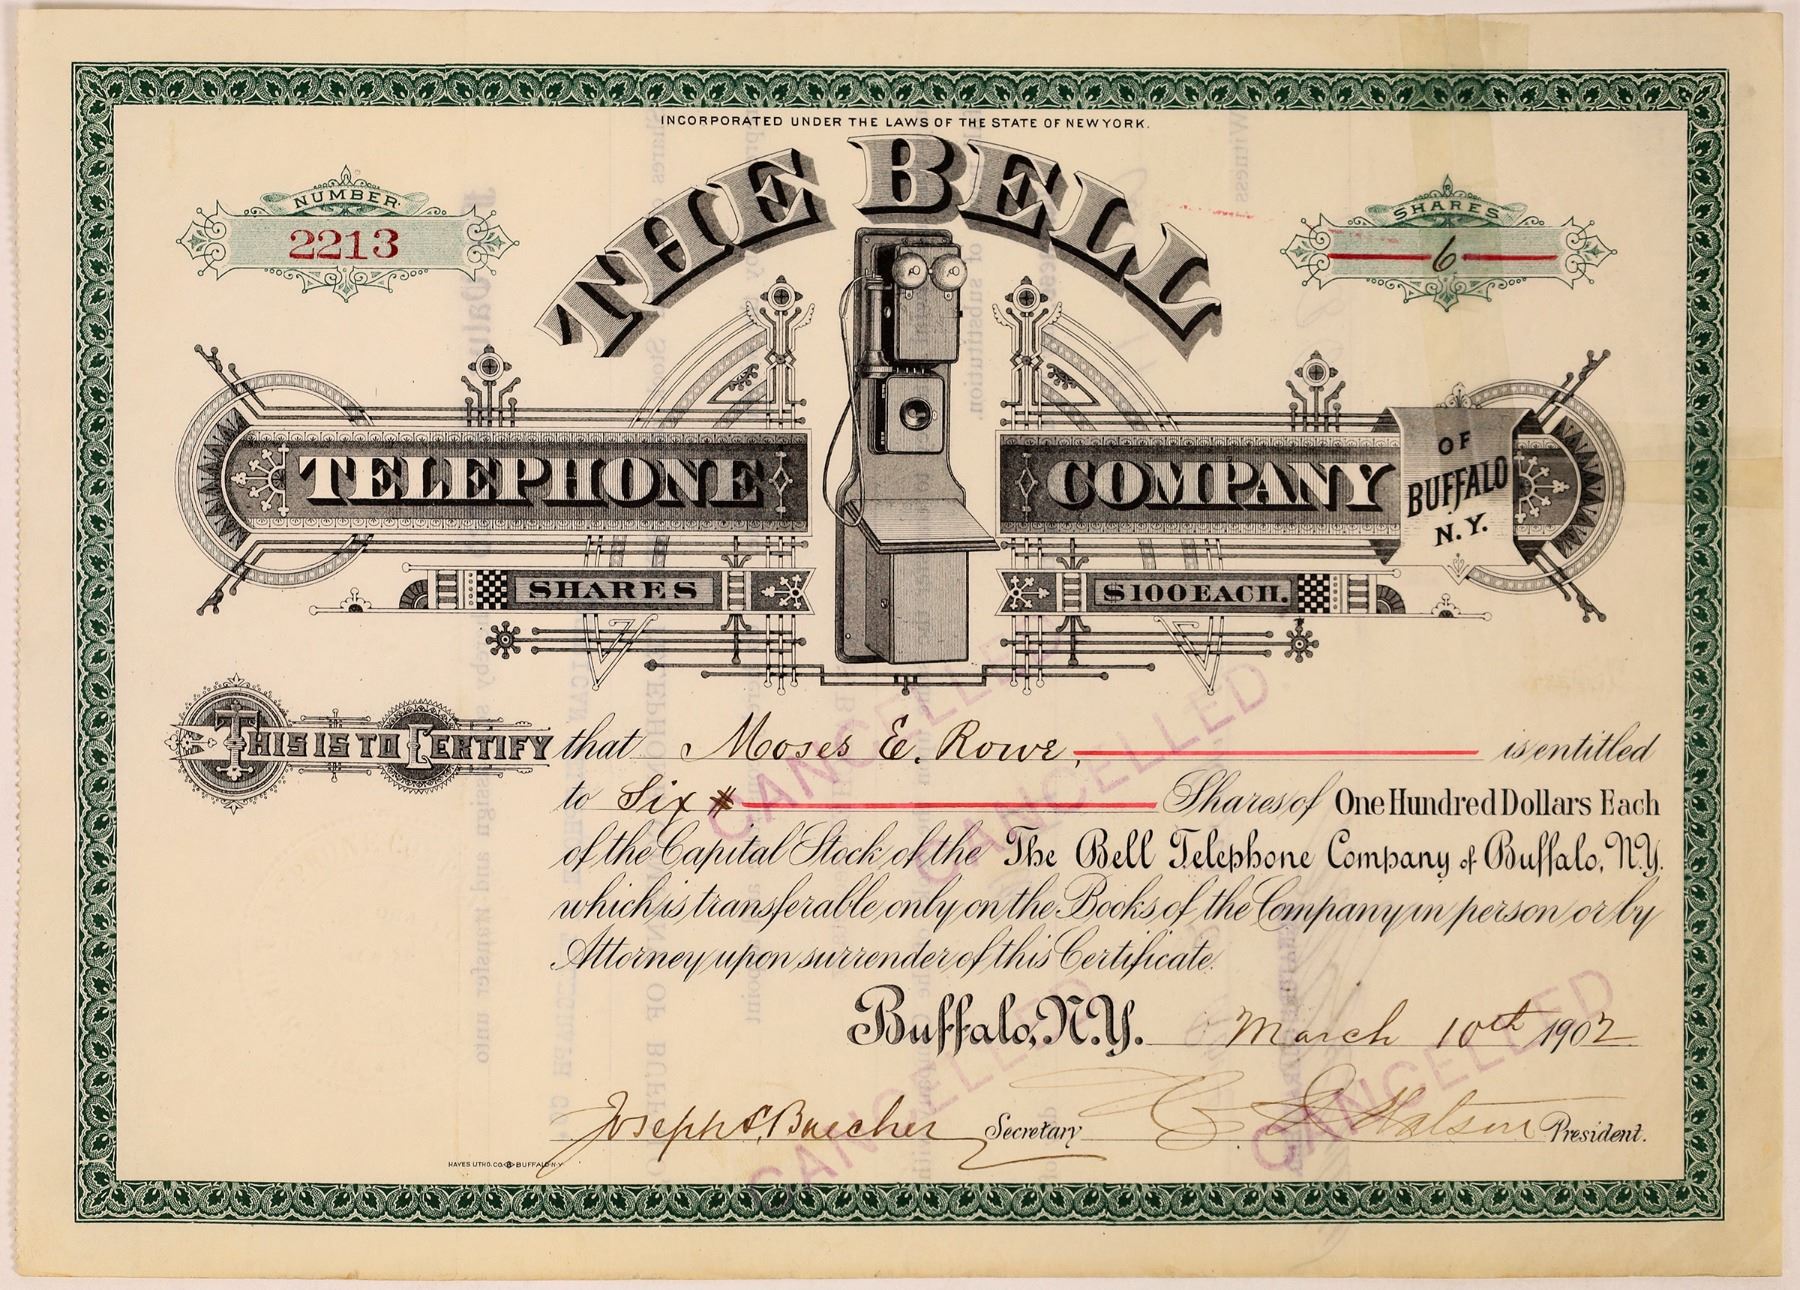 INCORPORATED UNDER THE LAWS OF THE STATE OF NEW YORK.
NUMBER
2213
SHARES
6
THE BELL
TELEPHONE COMPANY
OF
BUFFALO
N.Y.
SHARES $100 EACH.
THIS IS TO CERTIFY that Moses E. Rowe, is entitled
to Six Shares of One Hundred Dollars Each
of the Capital Stock of the The Bell Telephone Company of Buffalo, N.Y.
which is transferable only on the Books of the Company in person or by
Attorney upon surrender of this Certificate.
Buffalo, N.Y. March 10th 1902
Joseph Secretary Watson President.
HAYES LITHO. CO. BUFFALO N.Y.
CANCELLED
CANCELLED
CANCELLED
CANCELLED